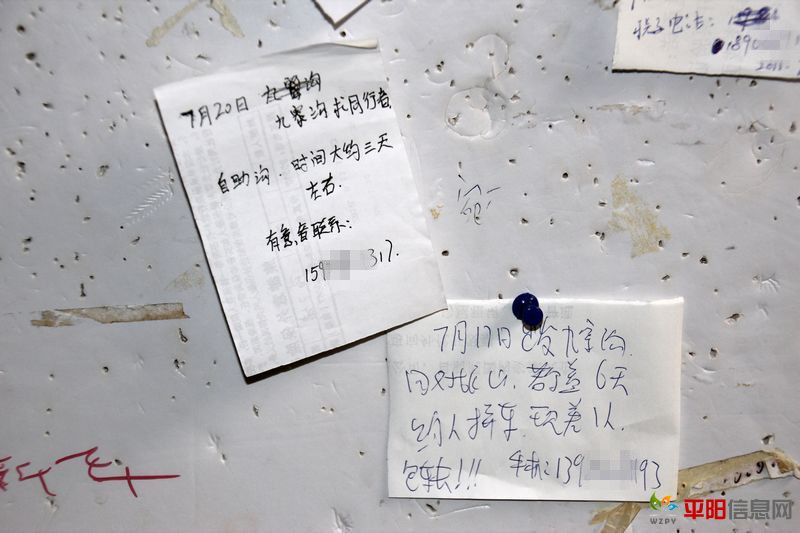 联系电话:
189
7月20日
九寨沟找同行者
自助沟.时间大约三天
左右.
有意者联系:
159 317.
7月17日出发九寨沟.
6天
约人拼车.现差1人.
包车!!! 手机:139 193
WZPY 平阳信息网